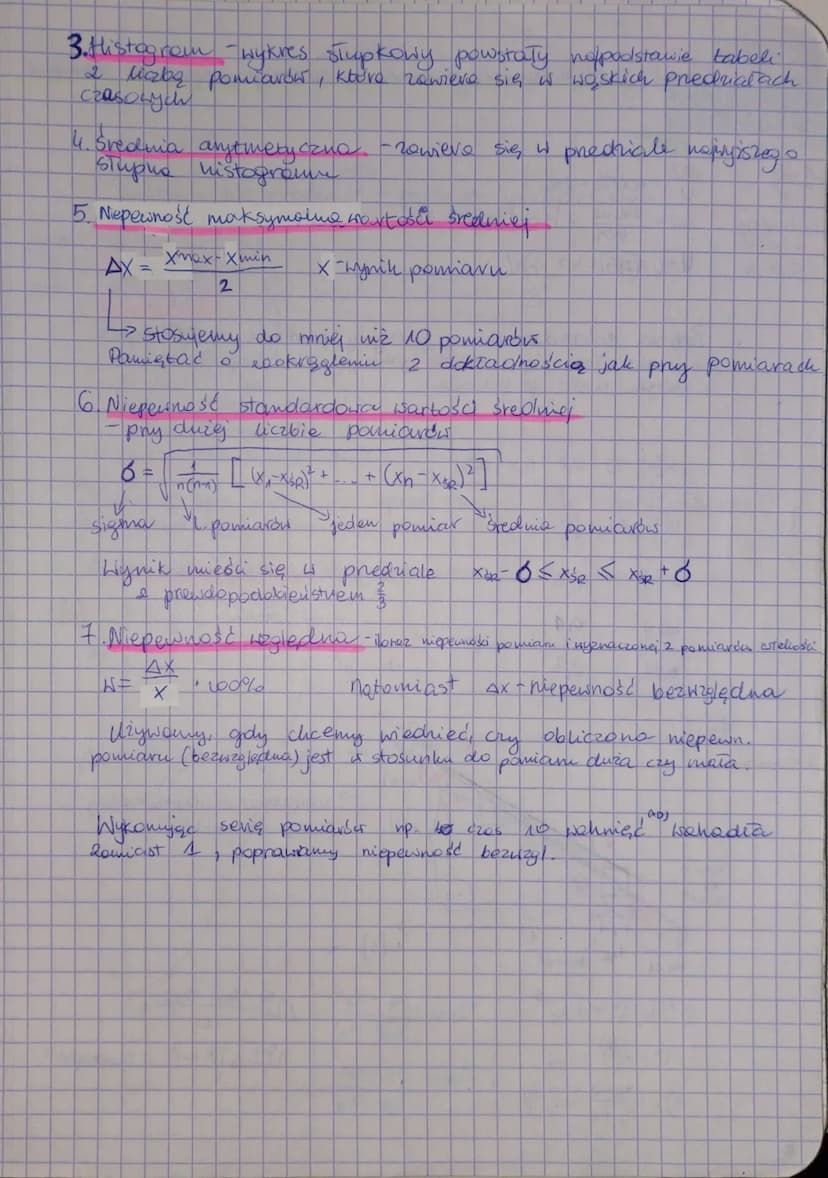 3. Histogram - wykres słupkowy powstały na podstawie tabeli
z liczbą pomiarów, która zawiera się w wąskich przedziałach
czasowych
4. Średnia arytmetyczna - zawiera się w przedziale najwyższego
słupka histogramu
5. Niepewność maksymalna wartości średniej
Δx = (xmax - xmin)/2 x - wynik pomiaru
↳ stosujemy do mniej niż 10 pomiarów
Pamiętać o zaokrągleniu z dokładnością jak przy pomiarach
6. Niepewność standardowa wartości średniej
- przy dużej liczbie pomiarów
σ = √(1/n(n-1) [(x₁-xśR)² + ... + (xn-xśR)²])
sigma l. pomiarów jeden pomiar średnia pomiarów
Wynik mieści się w przedziale xśR - σ ≤ xśR ≤ xśR + σ
z prawdopodobieństwem 2/3
7. Niepewność względna - iloraz niepewności pomiaru i wyznaczonej z pomiarów wielkości
W = Δx/x · 100% Natomiast Δx - niepewność bezwzględna
Używamy, gdy chcemy wiedzieć, czy obliczona niepewn.
pomiaru (bezwzględna) jest w stosunku do pomiaru duża czy mała.
Wykonując serię pomiarów np. czas 10 wahnięć wahadła
zamiast 1, poprawiamy niepewność bezwzgl.